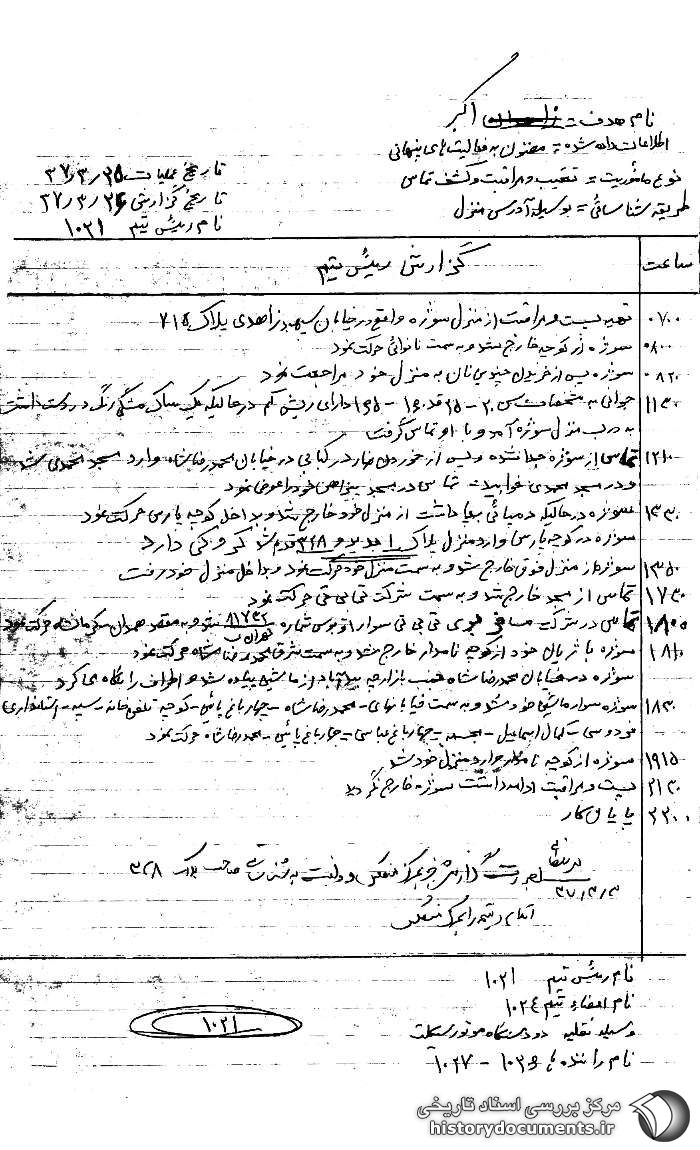 نام هدف = اکبر
اطلاعات داده شده = مظنون به فعالیت های پنهانی
نوع مأموریت = تعقیب و مراقبت و کشف تماس
طریقه شناسائی = بوسیله آدرس منزل
تاریخ عملیات ۳۷/۳/۲۵
تاریخ گزارش ۳۷/۳/۲۶
نام رئیس تیم ۱۰۲۱
ساعت گزارش رئیس تیم
۰۷۰۰ تهیه پست و مراقبت از منزل سوژه واقع در خیابان سپهبد زاهدی پلاک ۷۱۵
۰۸۰۰ سوژه از کوچه خارج شد و به سمت نانوائی حرکت نمود
۰۸۲۰ سوژه پس از خرید نان به منزل خود مراجعت نمود
۱۱۳۰ جوانی به مشخصات سن ۲۰ - ۲۵ قد ۱۶۰ - ۱۶۵ دارای ریش کم در حالیکه یک ساک مشکی رنگ در دست داشت
به درب منزل سوژه آمد و با او تماس گرفت
۱۲۱۰ تماس از سوژه جدا شده و پس از خوردن ناهار در کبابی در خیابان محمدرضا شاه وارد مسجد محمدی شد
و در مسجد محمدی خوابید تماس در مسجد پیراهن خود را عوض نمود
۱۳۳۰ سوژه در حالیکه دمپائی بپا داشت از منزل خود خارج شد و بداخل کوچه پارسی حرکت نمود
سوژه در کوچه پارسی وارد منزل پلاک ۳۲۸ شد کروکی دارد
۱۳۵۰ سوژه از منزل فوق خارج شد و به سمت منزل خود حرکت نمود و بداخل منزل خود رفت
۱۷۳۰ تماس از مسجد خارج شد و به سمت شرکت تی بی تی حرکت نمود
۱۸۰۰ تماس در شرکت مسافربری تی بی تی سوار اتوبوس شماره تهران ب شد و به مقصد همدان کرمانشاه حرکت نمود
۱۸۱۰ سوژه با ژیان خود از کوچه نامدار خارج شد و به سمت شرق محمدرضا شاه حرکت نمود
سوژه در خیابان محمدرضا شاه جنب بازارچه از ماشین پیاده شد و اطراف را نگاه می کرد
۱۸۳۰ سوژه سوار ماشین خود شد و به سمت خیابانهای - محمدرضا شاه - چهارباغ پائین - کوچه تلفن خانه - سپه - استانداری
فردوسی - کمال اسماعیل - مجسمه - چهارباغ عباسی - چهارباغ پائین - محمدرضا شاه حرکت نمود
۱۹۱۵ سوژه از کوچه نامدار وارد منزل خود شد
۲۱۳۰ پست و مراقبت ادامه داشت سوژه خارج نگردید
۲۲۰۰ پایان کار
صاحب پلاک ۳۲۸
نام رئیس تیم ۱۰۲۱
نام اعضاء تیم ۱۰۲۴
وسیله نقلیه دو دستگاه موتورسیکلت
نام راننده ها ۱۰۳۶ - ۱۰۲۷
۱۰۲۱
مرکز بررسی اسناد تاریخی
historydocuments.ir